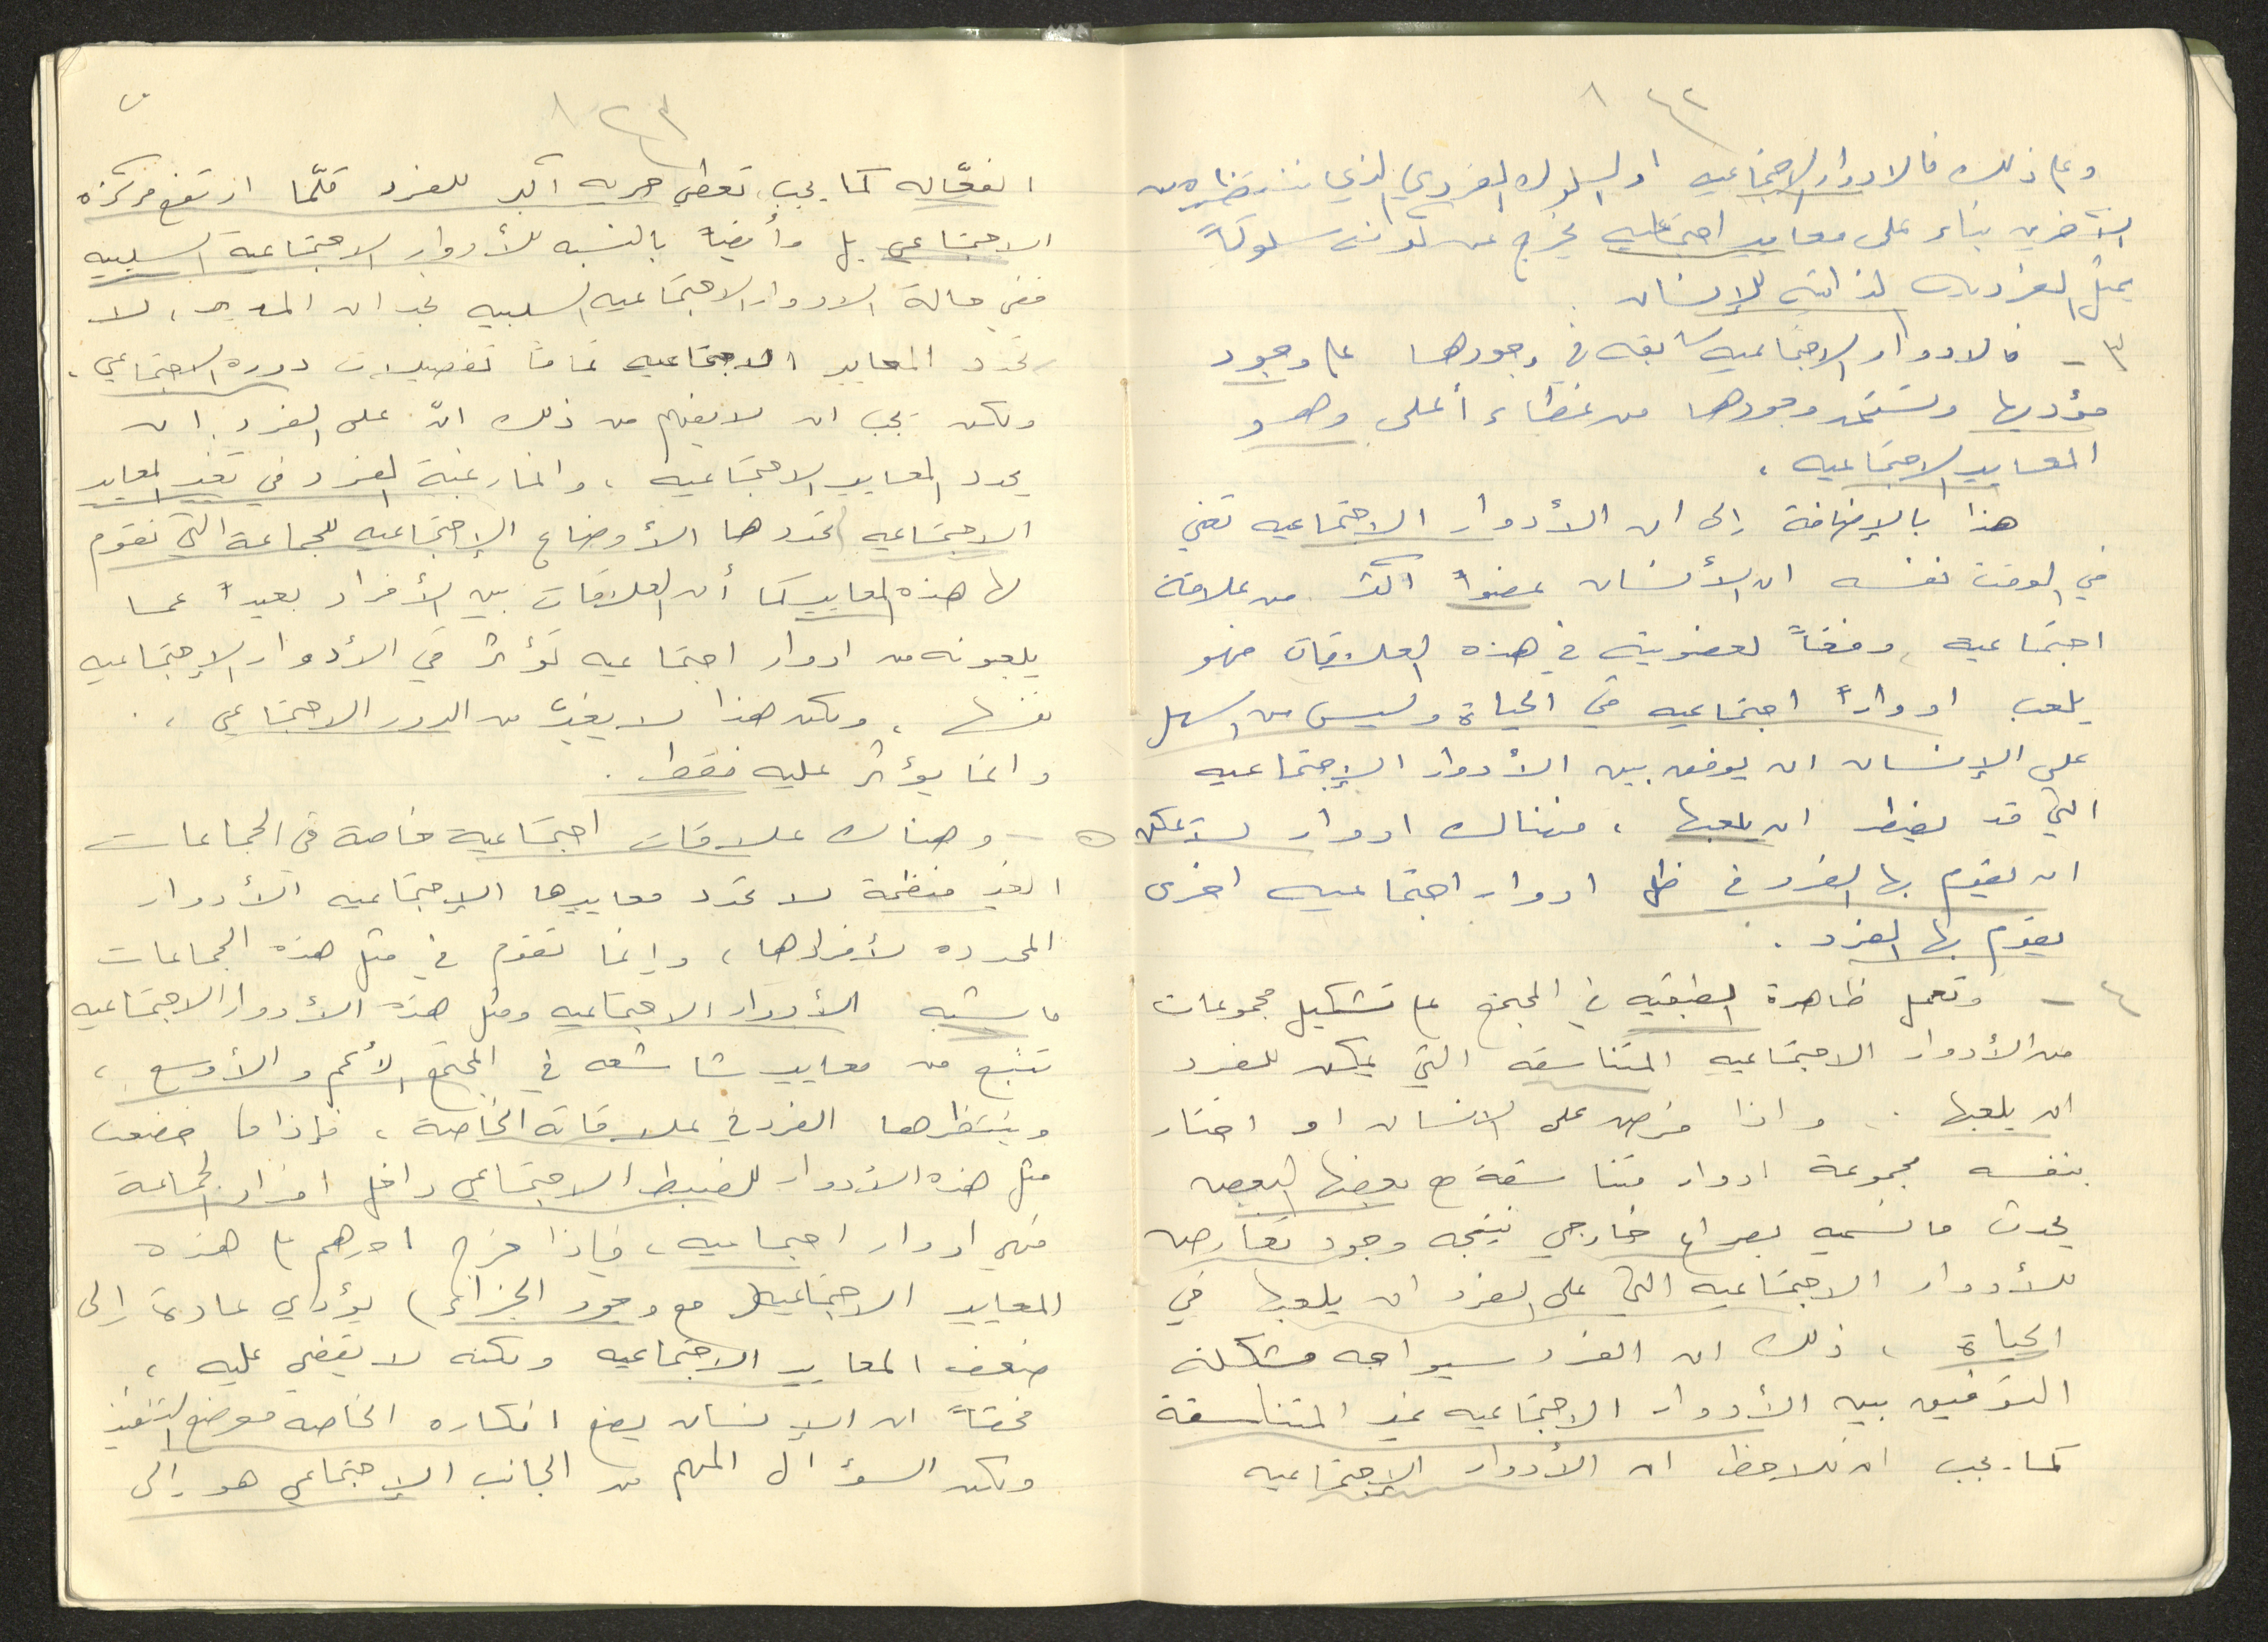 ٤٢
وعلى ذلك فالادوار الاجتماعيه او السلوك الفردي الذي ننتظره من
الآخرين بناء على معايير اجتماعيه يخرج عن كونه سلوكاً
يمثل الفرديه الذاتيه للإنسان .
٣ - فالادوار الاجتماعيه سابقه في وجودها على وجود
مؤديها وتستمد وجودها من غطاء أعلى وهو
المعايير الاجتماعيه ،
هذا بالإضافة إلى ان الأدوار الاجتماعيه تعني
في الوقت نفسه ان الأنسان عضواً اكثر من علاقة
اجتماعيه ، وفقاً لعضويته في هذه العلاقات فهو
يلعب ادواراً اجتماعيه في الحياة وليس من السهل
على الإنسان ان يوفق بين الأدوار الإجتماعيه
التي قد يضطر ان يلعبها ، فهناك ادوار لا يمكن
ان يقوم بها الفرد في ظل ادوار اجتماعيه اخرى
يقوم بها الفرد .
٤ - وتعمل ظاهرة الطبقيه في المجتمع على تشكيل مجموعات
من الأدوار الاجتماعيه المتناسقه التي يمكن للفرد
ان يلعبها .. واذا فرض على الانسان او اختار
بنفسه مجموعة ادوار متناسقة مع بعضها البعض
يحدث ما نسميه بصراع خارجي نتيجه وجود تعارض
للأدوار الاجتماعيه التي على الفرد ان يلعبها في
الحياة ، ذلك ان الفرد سيواجه مشكلة
التوفيق بين الأدوار الاجتماعيه غير المتناسقة
كما يجب ان نلاحظ ان الأدوار الإجتماعيه
٤٣
الفعّاله كما يجب تعطي حريه اكبر للفرد كلّما ارتفع مركزه
الاجتماعي بل وأيضاً بالنسبه للأدوار الاجتماعية السلبيه
ففي حالة الادوار الاجتماعيه السلبيه نجد ان المدير ، لا
تحدد المعايير الاجتماعيه تماماً تفصيلات دوره الاجتماعي ،
ولكن يجب ان لا يفهم من ذلك انّ على الفرد ان
يحدد المعايير الاجتماعيه ، وانما رغبة الفرد في تغير المعايير
الاجتماعيه تحددها الأوضاع الإجتماعيه للجماعة التي تقوم
لها هذه المعايير كما أن العلاقات بين الأفراد بعيداً عما
يلعبونه من ادوار اجتماعيه تؤثر في الأدوار الإجتماعيه
نفسها ، ولكن هذا لا يغيّر من الدور الاجتماعي ،
وانما يؤثر عليه فقط .
٥ - وهناك علاقات اجتماعية خاصة في الجماعات
الغير منظمة لا تحدد معاييرها الإجتماعيه الأدوار
المحدده لأفرادها ، وإنما تقوم في مثل هذه الجماعات
ما يشبه الأدوار الاجتماعيه ومثل هذه الأدوار الاجتماعيه
تنبع من معايير شائعه في المجتمع الأعم والأوسع ،
وينتظرها الفرد في علاقاته الخاصة ، فإذا ما خضعت
مثل هذه الأدوار للضبط الاجتماعي داخل افراد الجماعة
فهي ادوار اجتماعيه ، فإذا خرج احدهم على هذه
المعايير الاجتماعيه ( مع وجود الجزاء ) يؤدي عادة إلى
ضعف المعايير الاجتماعيه ولكنه لا يقضي عليه ،
فحقاً ان الإنسان يضع افكاره الخاصه موضع التنفيذ
ولكن السؤال المهم من الجانب الإجتماعي هو إلى